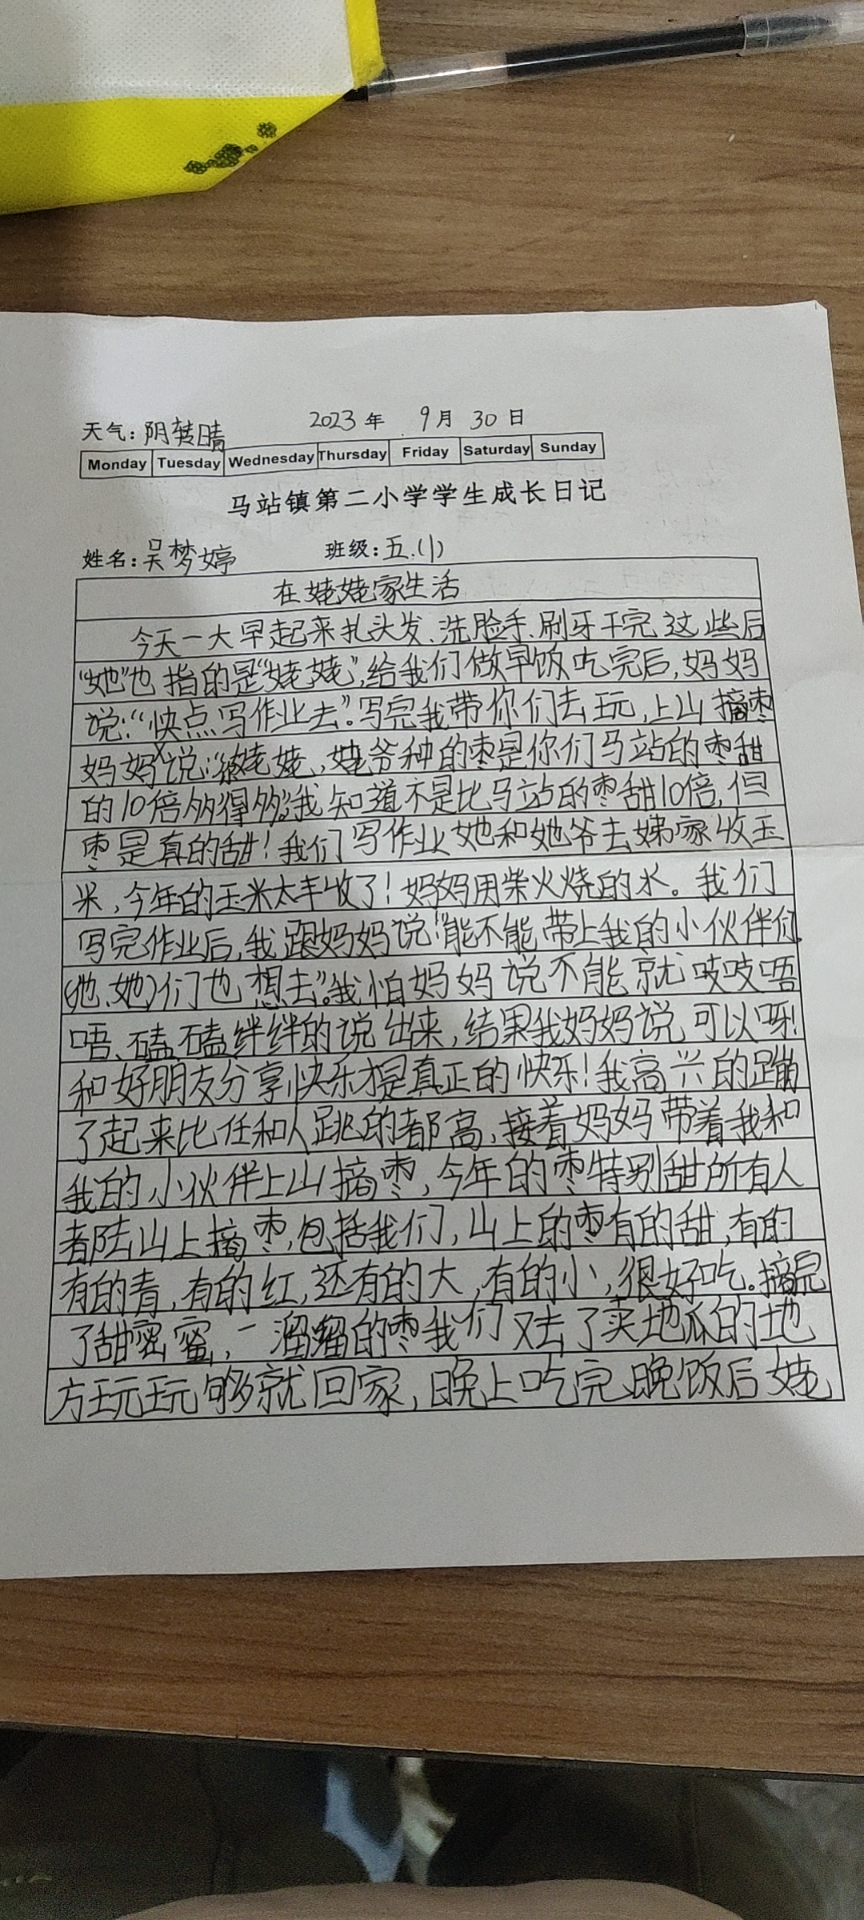 2023 年 9月 30 日
天气：阴转晴
Monday Tuesday Wednesday Thursday Friday Saturday Sunday
马站镇第二小学学生成长日记
姓名：吴梦婷 班级：五.(1)
在姥姥家生活
今天一大早起来扎头发、洗脸手、刷牙干完这些后
“她”也指的是“姥姥”,给我们做早饭吃完后,妈妈
说:“快点写作业去”.写完我带你们去玩,上山摘枣
妈妈说:“姥姥、姥爷种的枣是你们马站的枣甜
的10倍多得多”我知道不是比马站的枣甜10倍,但
枣是真的甜！我们写作业她和她爷去娣家收玉
米,今年的玉米太丰收了！妈妈用柴火烧的水。我们
写完作业后,我跟妈妈说“能不能带上我的小伙伴们
(他、她)们也想去”.我怕妈妈说不能就吱吱唔
唔、磕磕绊绊的说出来,结果我妈妈说可以呀!
和好朋友分享快乐才是真正的快乐!我高兴的蹦
了起来比任和人跳的都高,接着妈妈带着我和
我的小伙伴上山摘枣,今年的枣特别甜所有人
都陆山上摘枣,包括我们,山上的枣有的甜,有的
有的青,有的红,还有的大,有的小,很好吃。摘完
了甜密蜜,一溜溜的枣我们又去了卖地瓜的地
方玩玩够就回家,晚上吃完晚饭后姥